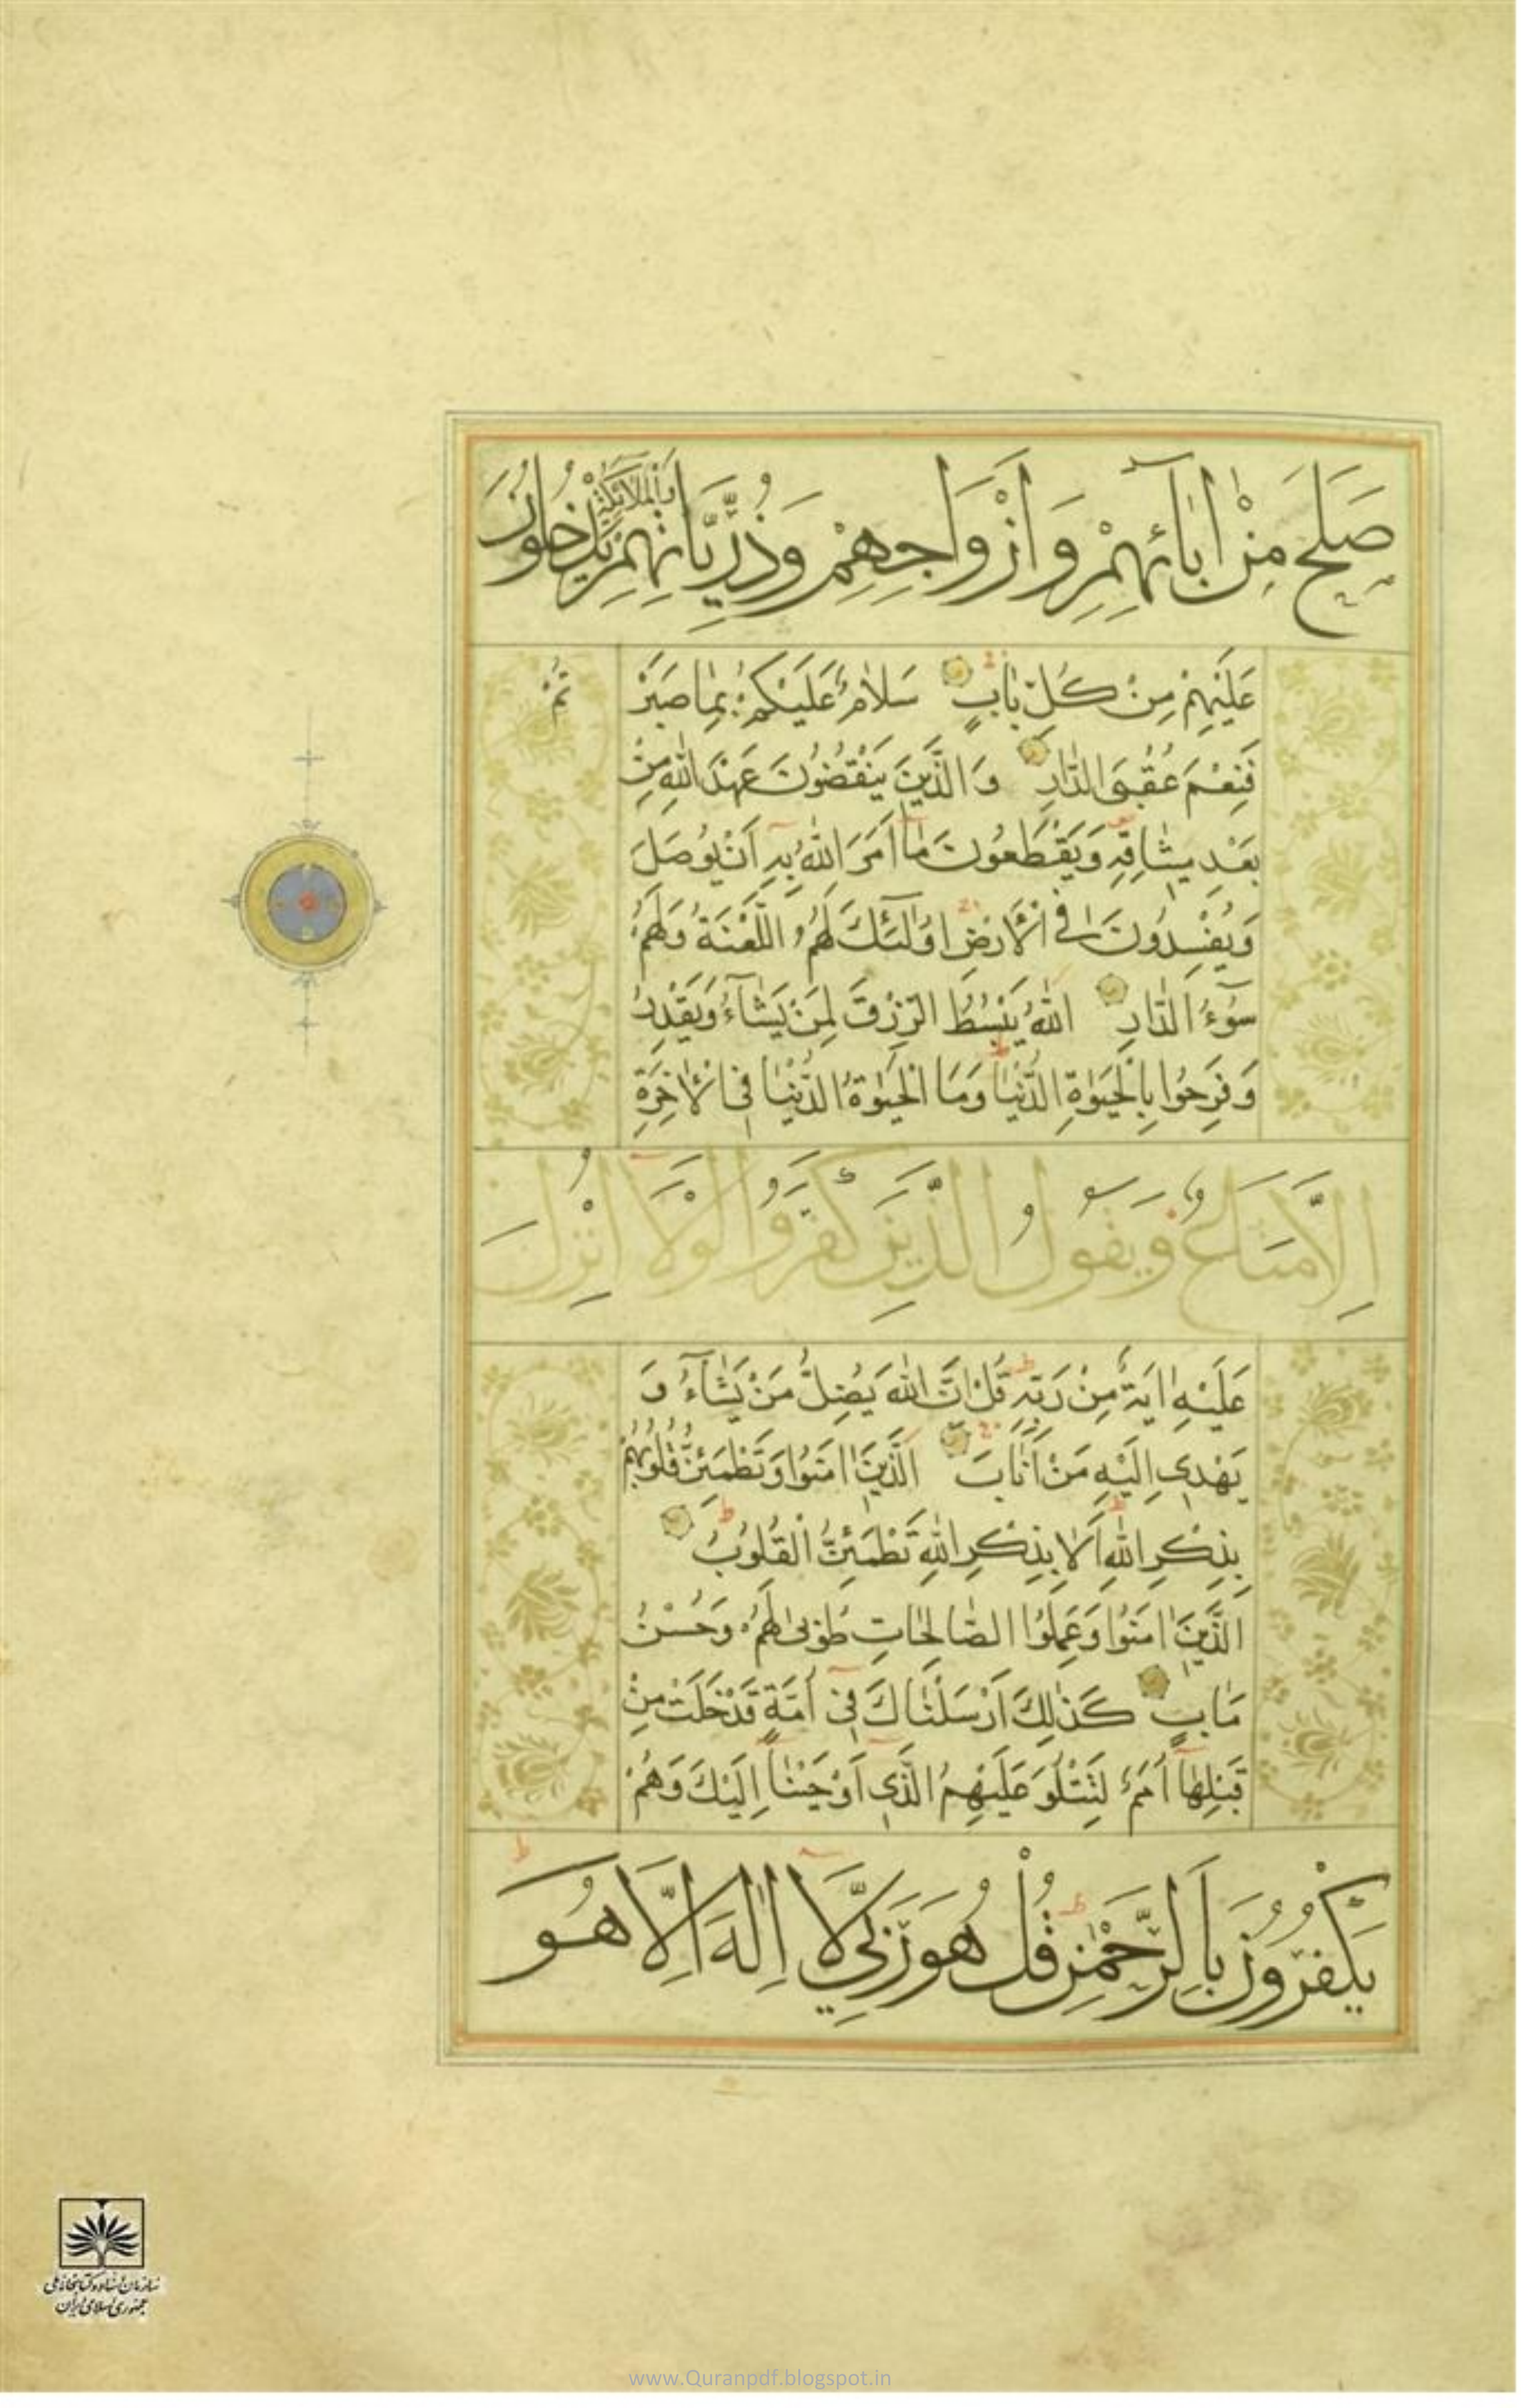 صَلَحَ مِنْ اٰبَآئِهِمْ وَاَزْوَاجِهِمْ وَذُرِّيَّاتِهِمْ وَالْمَلَائِكَةُ يَدْخُلُونَ
عَلَيْهِمْ مِنْ كُلِّ بَابٍ سَلَامٌ عَلَيْكُمْ بِمَا صَبَرْ تُمْ
فَنِعْمَ عُقْبَى الدَّارِ وَالَّذِينَ يَنْقُضُونَ عَهْدَ اللّٰهِ مِنْ
بَعْدِ مِيثَاقِهِ وَيَقْطَعُونَ مَآ اَمَرَ اللّٰهُ بِهِ اَنْ يُوصَلَ
وَيُفْسِدُونَ فِي الْاَرْضِ اُولٰٓئِكَ لَهُمُ اللَّعْنَةُ وَلَهُمْ
سُوٓءُ الدَّارِ اللّٰهُ يَبْسُطُ الرِّزْقَ لِمَنْ يَشَآءُ وَيَقْدِرُ
وَفَرِحُوا بِالْحَيٰوةِ الدُّنْيَا وَمَا الْحَيٰوةُ الدُّنْيَا فِي الْاٰخِرَةِ
اِلَّا مَتَاعٌ وَيَقُولُ الَّذِينَ كَفَرُوا لَوْلَآ اُنْزِلَ
عَلَيْهِ اٰيَةٌ مِنْ رَبِّهِ قُلْ اِنَّ اللّٰهَ يُضِلُّ مَنْ يَشَآءُ وَ
يَهْدِي اِلَيْهِ مَنْ اَنَابَ اَلَّذِينَ اٰمَنُوا وَتَطْمَئِنُّ قُلُوبُهُمْ
بِذِكْرِ اللّٰهِ اَلَا بِذِكْرِ اللّٰهِ تَطْمَئِنُّ الْقُلُوبُ
اَلَّذِينَ اٰمَنُوا وَعَمِلُوا الصَّالِحَاتِ طُوبٰى لَهُمْ وَحُسْنُ
مَاٰبٍ كَذٰلِكَ اَرْسَلْنَاكَ فِي اُمَّةٍ قَدْ خَلَتْ مِنْ
قَبْلِهَآ اُمَمٌ لِتَتْلُوَ عَلَيْهِمُ الَّذِي اَوْحَيْنَآ اِلَيْكَ وَهُمْ
يَكْفُرُونَ بِالرَّحْمٰنِ قُلْ هُوَ رَبِّي لَآ اِلٰهَ اِلَّا هُوَ
سازمان اسناد و کتابخانه ملی
جمهوری اسلامی ایران
www.Quranpdf.blogspot.in